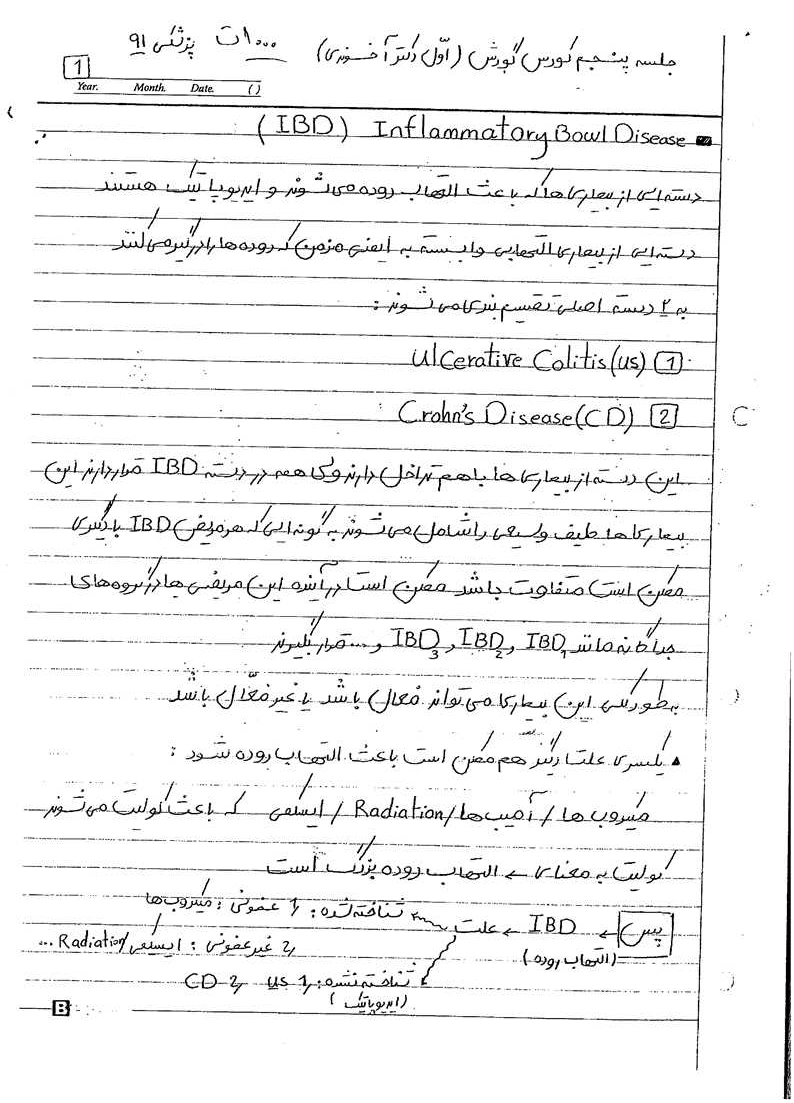 جلسه پنجم کورس گوارش (اول دکتر آخوندی) ۱۰۰۰۰ت پزشکی ۹۱
1
Year. Month. Date. ( )
(IBD) Inflammatory Bowl Disease
دسته ایی از بیماری ها که باعث التهاب روده می شوند و ایدیوپاتیک هستند
دسته ایی از بیماری التهابی وابسته به ایمنی مزمن که روده ها را درگیر می کنند
به ۲ دسته اصلی تقسیم بندی می شوند :
1 Ulcerative Colitis (us)
2 Crohn's Disease (CD)
این دسته از بیماری ها با هم تداخل دارند ولی همه در دسته IBD قرار دارند این
بیماری ها طیف وسیعی را شامل می شوند به گونه ایی که هر مریض IBD با دیگری
ممکن است متفاوت باشد ممکن است در آینده این مریضی ها در گروه های
جداگانه مانند IBD1 , IBD2 , IBD3 و ... قرار بگیرند
به طور کلی این بیماری می تواند فعال باشد یا غیر فعّال باشد
▲ یکسری علتا دیگر هم ممکن است باعث التهاب روده شود :
میکروب ها / آمیب ها / Radiation / ایسکمی که باعث کولیت می شوند
کولیت به معنای ← التهاب روده بزرگ است
پس ← IBD ← علت شناخته شده : 1, عفونی : میکروب ها
(التهاب روده) 2, غیر عفونی : ایسکمی/Radiation ...
شناخته نشده : 1, us 2, CD
(ایدیوپاتیک)
B